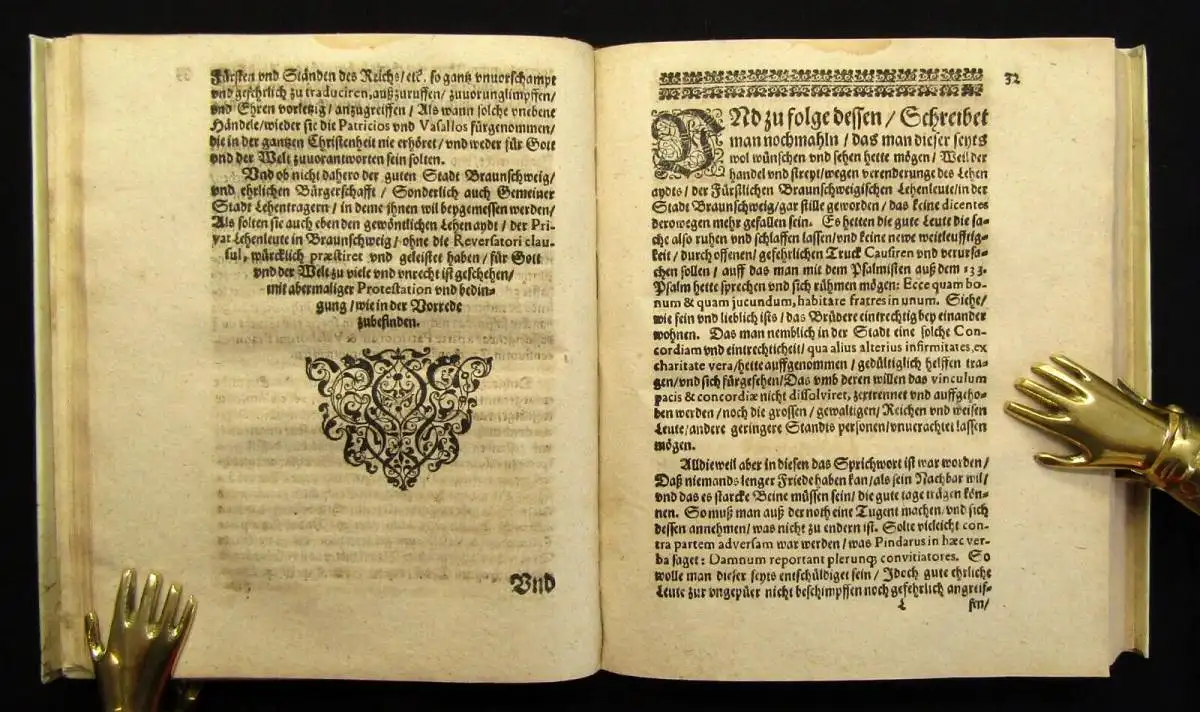 Fürsten vnd Ständen des Reichs/etc. so gantz vnuorschampt
vnd gefehrlich zu traduciren, außzuruffen/ zuuorunglimpffen/
vnd Ehren vorletzig/ anzugreiffen/ Als wann solche vnebene
Händele/wieder sie die Patricios vnd Vasallos fürgenommen/
die in der gantzen Christenheit nie erhöret/ vnd weder für Gott
vnd der Welt zuuorantworten sein solten.
Vnd ob nicht dahero der guten Stadt Braunschweig/
vnd ehrlichen Bürgerschafft / Sonderlich auch Gemeiner
Stadt Lehentragern / in deme jhnen wil beygemessen werden/
Als solten sie auch eben den gewöntlichen Lehen aydt / der Pri-
vat Lehenleute in Braunschweig / ohne die Reversatori clau-
sul, würcklich præstiret vnd geleistet haben / für Gott
vnd der Welt zu viele vnd vnrecht ist geschehen/
mit abermaliger Protestation vnd bedin-
gung / wie in der Vorrede
zubefinden.
Vnd
32
VNd zu folge dessen / Schreibet
man nochmahln / das man dieser seyts
wol wünschen vnd sehen hette mögen / Weil der
handel vnd streyt / wegen verenderunge des Lehen
aydts / der Fürstlichen Braunschweigischen Lehenleute/in der
Stadt Braunschweig/gar stille geworden / das keine dicentes
derowegen mehr gefallen sein. Es hetten die gute Leute die sa-
che also ruhen vnd schlaffen lassen/vnd keine newe weitleufftig-
keit / durch offenen/ gefehrlichen Truck Causiren vnd verursa-
chen sollen / auff das man mit dem Psalmisten auß dem 133.
Psalm hette sprechen vnd sich rühmen mögen: Ecce quam bo-
num & quam jucundum, habitare fratres in unum. Siehe/
wie fein vnd lieblich ists / das Brüdere eintrechtig bey einander
wohnen. Das man nemblich in der Stadt eine solche Con-
cordiam vnd eintrechticheit / qua alius alterius infirmitates, ex
charitate vera/hette auffgenommen / gedültiglich helffen tra-
gen/vnd sich fürgesehen/Das vmb deren willen das vinculum
pacis & concordiæ nicht dissolviret, zertrennet vnd auffgeho-
ben werden / noch die grossen / gewaltigen/ Reichen vnd weisen
Leute/andere geringere Standts personen/vnuerachtet lassen
mögen.
Alldieweil aber in diesen das Sprichwort ist war worden/
Daß niemands lenger Friede haben kan/als sein Nachbar wil/
vnd das es starcke Beine müssen sein/ die gute tage trägen kön-
nen. So muß man auß der noth eine Tugent machen/vnd sich
dessen annehmen / was nicht zu endern ist. Solte vieleicht con-
tra partem adversam war werden / was Pindarus in hæc ver-
ba saget: Damnum reportant plerunq; convitiatores. So
wolle man dieser seyts entschüldiget sein / Jdoch gute ehrliche
Leute zur vngepüer nicht beschimpffen noch gefehrlich angreif-
L
fen/